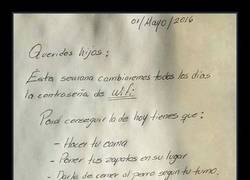 01/Mayo/2016
Queridos hijos:
Ésta semana cambiaremos todos los días
la contraseña de Wifi.
Para conseguir la de hoy tienes que:
- Hacer tu cama
- Poner tus zapatos en su lugar
- Darle de comer al perro segun tu turno.